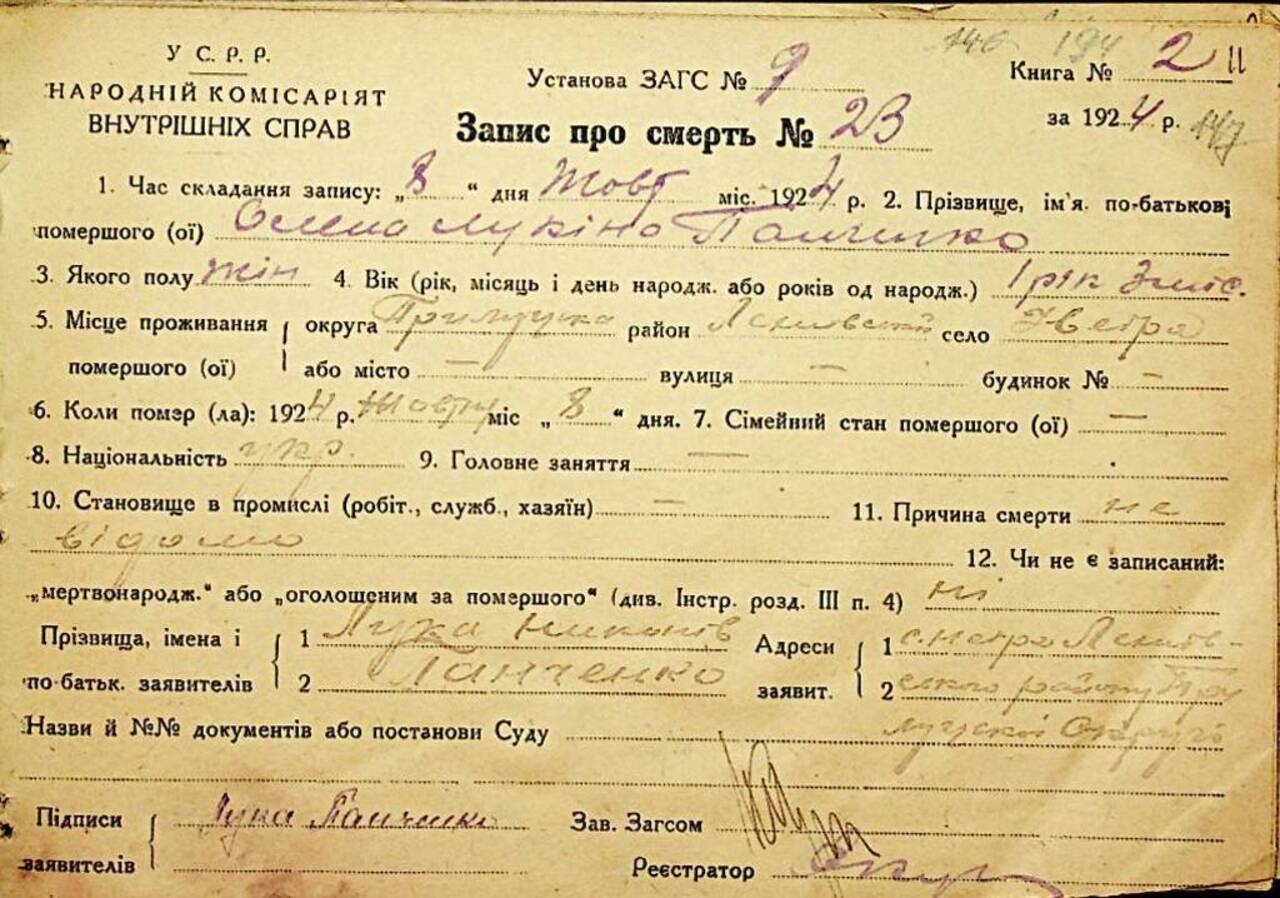 У С. Р. Р.
НАРОДНІЙ КОМІСАРІЯТ
ВНУТРІШНІХ СПРАВ
Установа ЗАГС № 9
146 194
Книга № 2 11
за 1924 р. 147
Запис про смерть № 23
1. Час складання запису: „8 “ дня Жовт міс. 1924 р. 2. Прізвище, ім'я. по-батькові
помершого (ої) Олена Лукіна Панченко
3. Якого полу жін 4. Вік (рік, місяць і день народж. або років од народж.) 1 рік 3 міс.
5. Місце проживання округа Прилуцка район село
помершого (ої) або місто — вулиця — будинок № —
6. Коли помер (ла): 1924 р. Жовтня міс „ 8 “ дня. 7. Сімейний стан помершого (ої) —
8. Національність укр. 9. Головне заняття —
10. Становище в промислі (робіт., служб., хазяїн) — 11. Причина смерти не
відомо
12. Чи не є записаний:
„мертвонародж.“ або „оголошеним за помершого“ (див. Інстр. розд. III п. 4) ні
Прізвища, імена і 1 Лука
по-батьк. заявителів 2 Панченко
Адреси 1 с.
заявит. 2 ського району При
Назви й №№ документів або постанови Суду луцкої Округи
Підписи Лука Панченко Зав. Загсом
заявителів Реєстратор